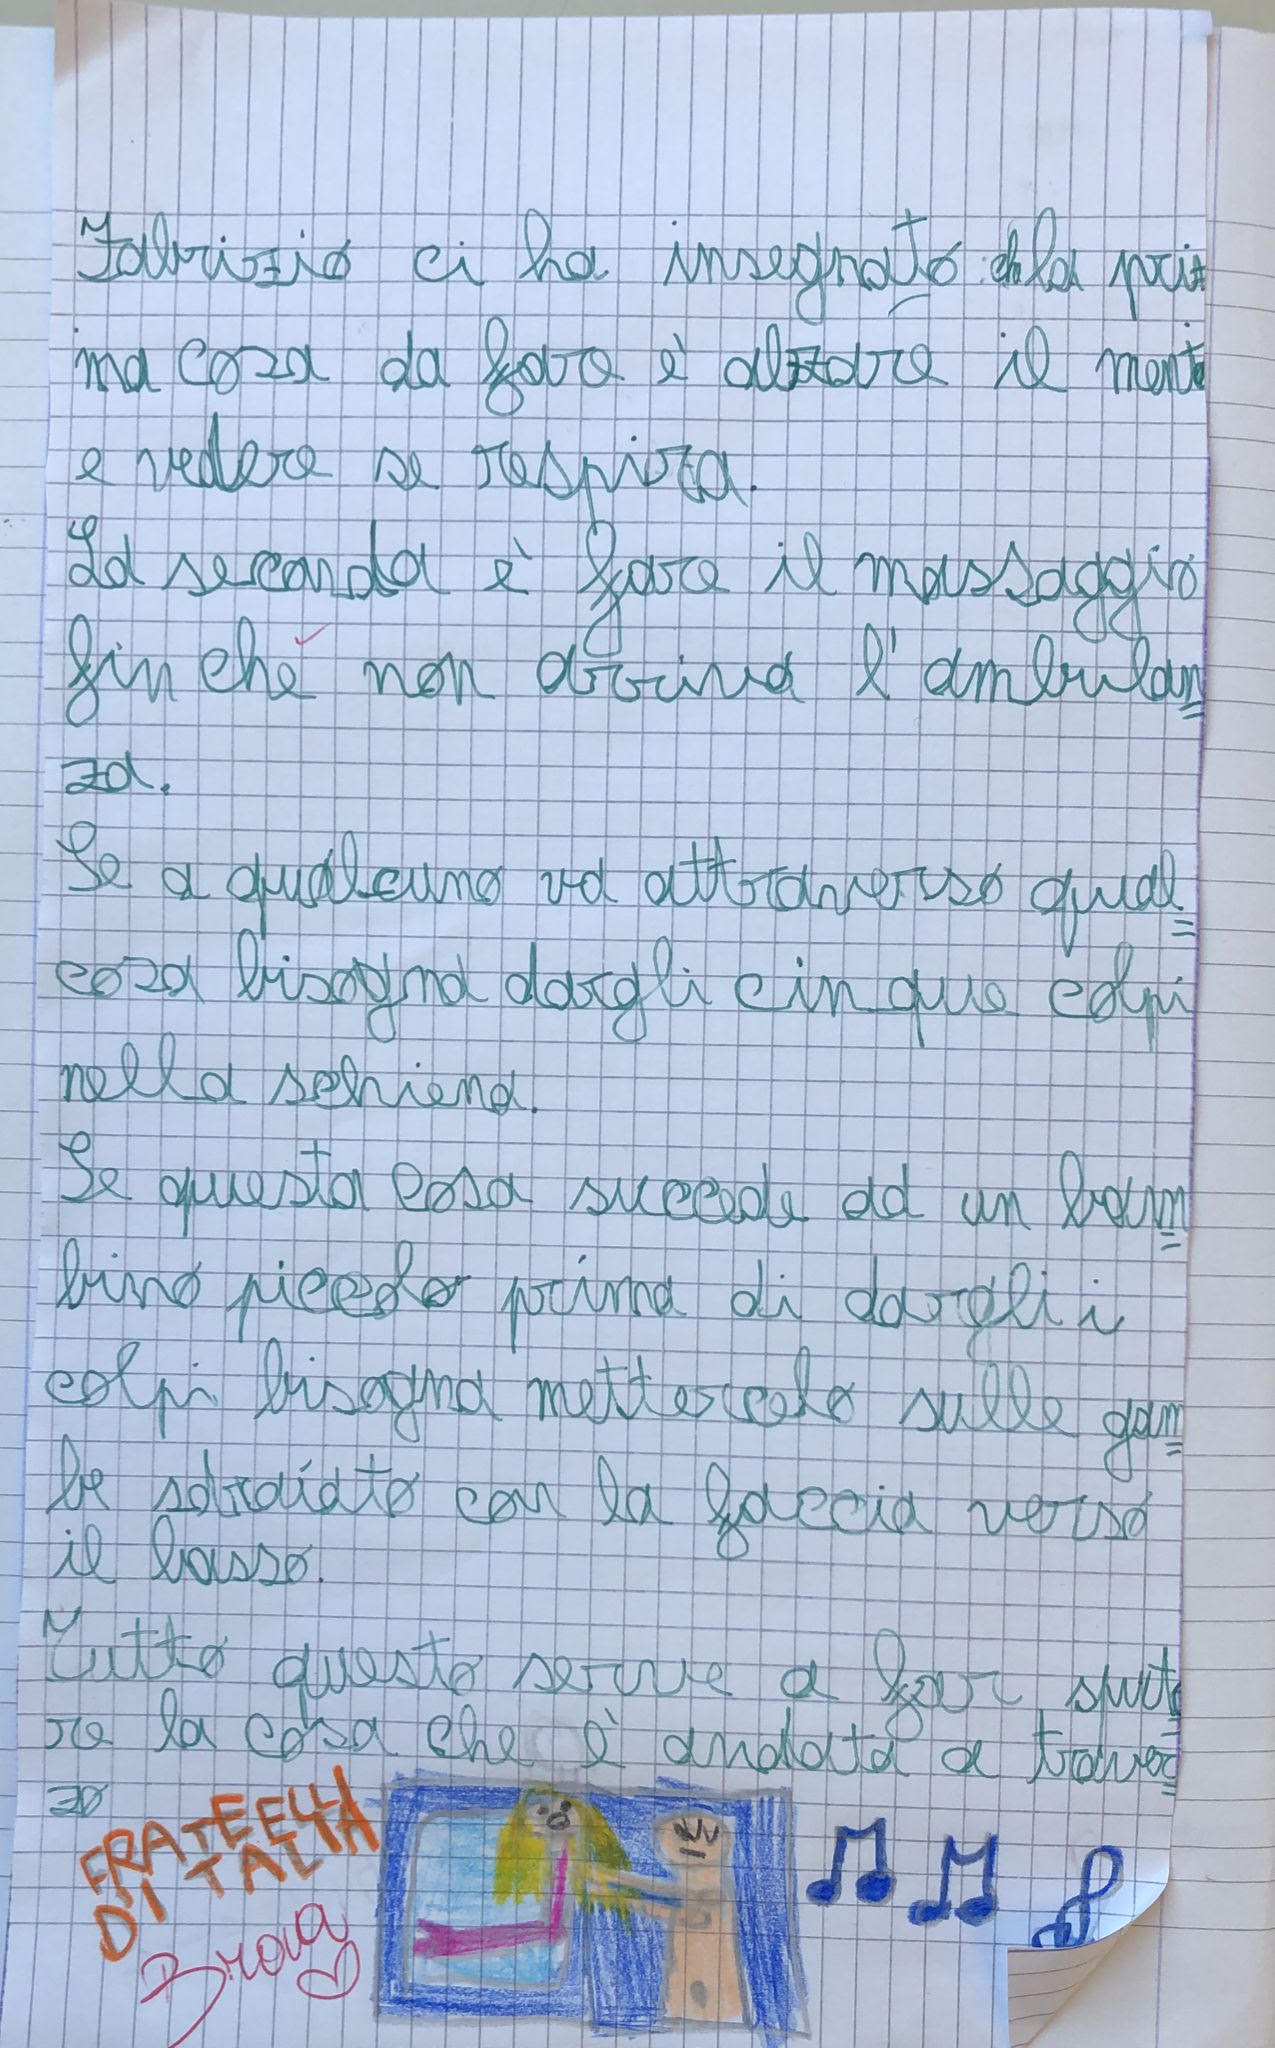 Fabrizio ci ha insegnato ch la pri=
ma cosa da fare è alzare il mento
e vedere se respira.
La seconda è fare il massaggio
fin ché non arriva l'ambulan=
za.
Se a qualcuno va attraverso qual=
cosa bisogna dargli cinque colpi
nella schiena.
Se questa cosa succede ad un bam=
bino piccolo prima di dargli i
colpi bisogna mettercelo sulle gam=
be sdraiato con la faccia verso
il basso.
Tutto questo serve a far sputa=
re la cosa che è andata a traver=
so
FRATEELLI
DI TALIA
Brava